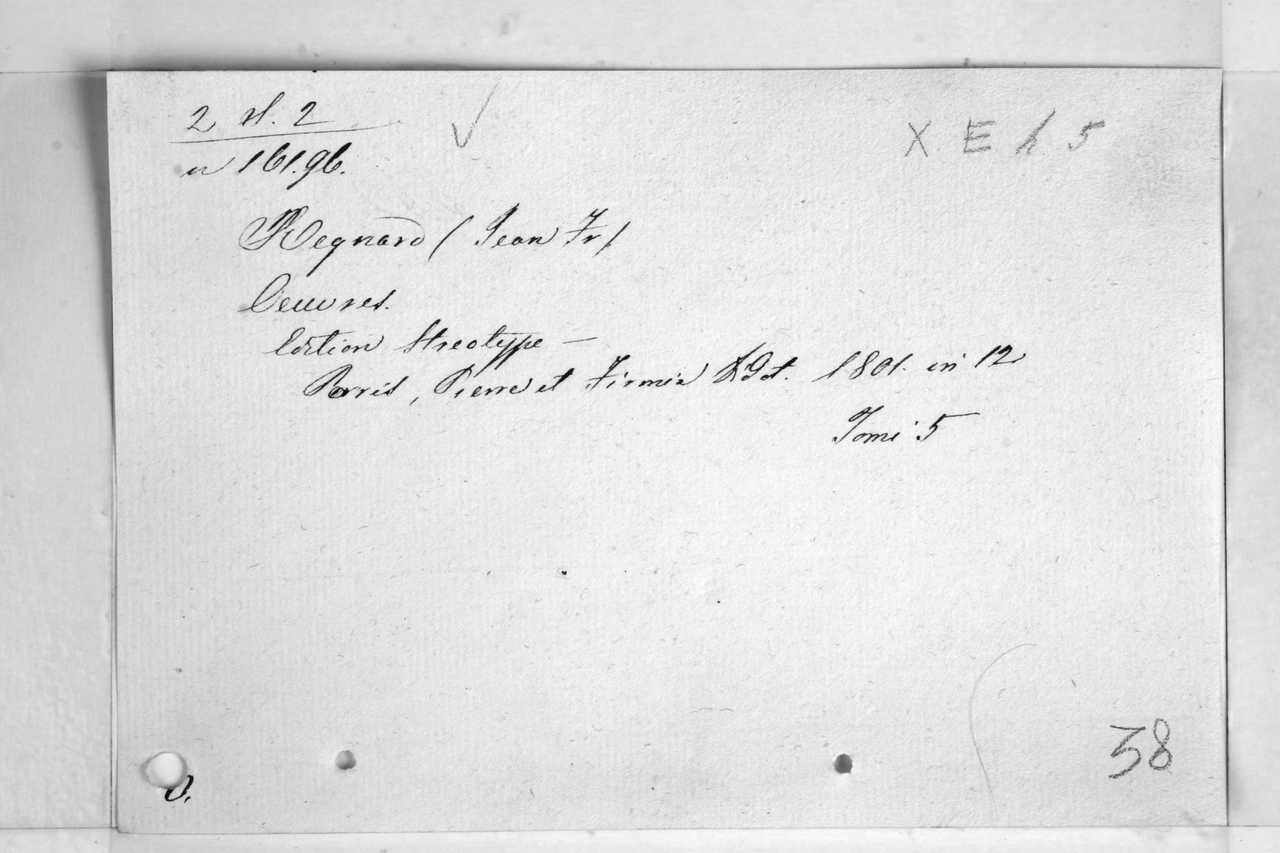 2 sl. 2
n 161.96.
X E h 5
Regnard (Jean Fr/
Oeuvres.
Edition Streotype —
Paris, Pierre et Firmin Didot. 1801. in 12
Tome 5
38
O.